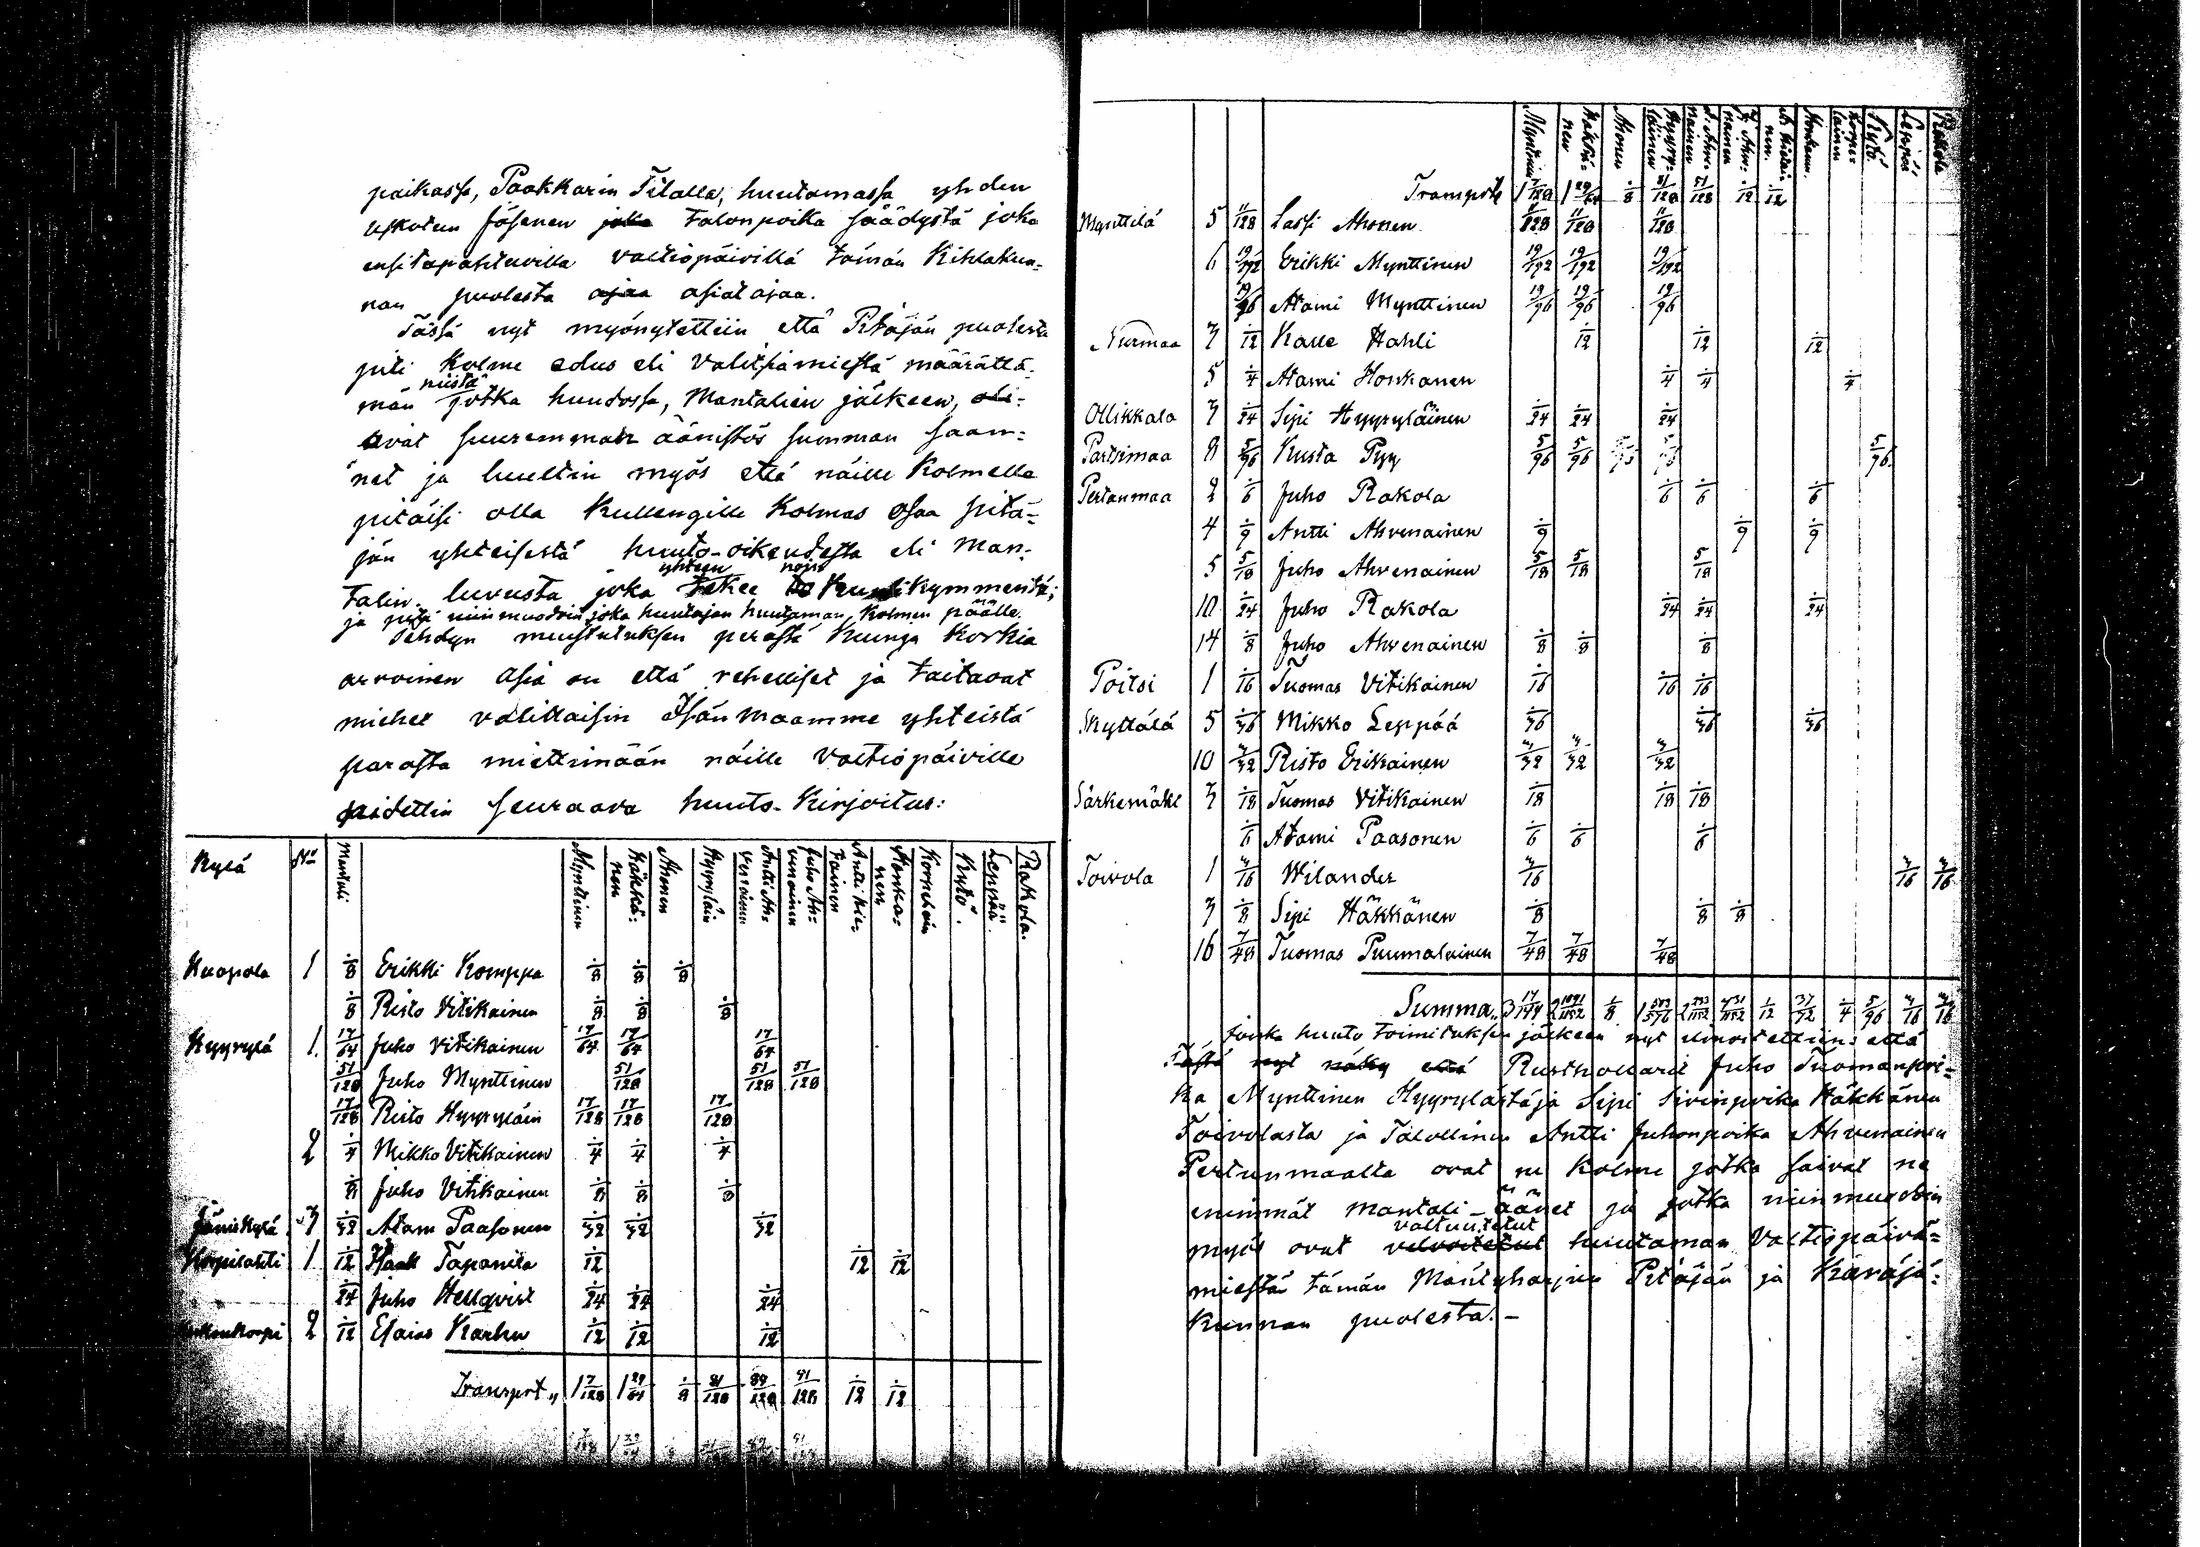 paikassa, Paakkarin Tilalla, huutamassa yhden
uskotun Jäsenen joka talonpoika säädystä joka
ensitapahtuvilla valtiopäivillä tämän Kihlakun-
nan puolesta ajaa asiat ajaa.
Tässä nyt myönytettiin että Pitäjän puolesta
piti Kolme edus eli Valitsiamiestä määrättä-
män niistä jotka huudossa, Mantalien jälkeen, oli-
sivat suuremman äänistös summan saan-
net ja luultin myös että näille Kolmelle
pitäisi olla Kullengille Kolmas osaa pitä-
jän yhteisestä huuto-oikeudesta eli Man-
talin luvusta joka yhteen tekee noin Kuusikymmentä;
ja pitä niin muodoin joka huutajan huutaman Kolmen päälle.
Tehdyn muistutuksen perästä Kuinga Korkia
arvoinen Asia on että rehelliset ja taitavat
miehet valittaisin Isänmaamme yhteistä
parasta miettimään näille Valtiopäiville
pidettin seuraava huuto-Kirjoitus:
Kylä No Mantali Mynttinen Häkkä-nen Ahonen Hyyryläin Antti Ah-venainen Juho Ah-venainen Antti Hie-tainen Honka-nen Korpelain Kytö. Leppää. Rakola.
Kuopola 1 ÷/8 Erikki Komppa ÷/8 ÷/8 ÷/8
÷/8 Risto Vitikainen ÷/8 ÷/8 ÷/8
Hyyrylä 1. 17/64 Juho Vitikainen 17/64 17/64 17/64
51/128 Juho Mynttinen 51/128 51/128 51/128
17/128 Risto Hyyryläin 17/128 17/128 17/128
2 ÷/4 Mikko Vitikainen ÷/4 ÷/4 ÷/4
÷/8 Juho Vitikainen ÷/8 ÷/8 ÷/8
Jäniskylä 3 ÷/32 Atam Paasonen ÷/32 ÷/32 ÷/32
Korpilahti 1 ÷/12 Isaak Tapanila ÷/12 ÷/12 ÷/12
÷/24 Juho Hellqvist ÷/24 ÷/24 ÷/24
2 ÷/12 Esaias Karhu ÷/12 ÷/12 ÷/12
Transport „ 1 7/128 1 29/64 ÷/8 81/128 89/128 51/128 ÷/12 ÷/12
Mynttinen Häkkä-nen Ahonen Hyyry-läinen A. Ahve-nainen J. Ahve-nainen Honkanen Kytö Leppää Rakola
Transport 1 7/128 1 29/64 ÷/8 81/128 51/128 ÷/12 ÷/12
Mynttilä 5 11/128 Lassi Ahonen 11/128 11/128 11/128
6 19/192 Erikki Mynttinen 19/192 19/192 19/192
19/96 Atami Mynttinen 19/96 19/96 19/96
Nurmaa 3 ÷/12 Kalle Hahli ÷/12 ÷/12 ÷/12
5 ÷/4 Atami Honkanen ÷/4 ÷/4 ÷/4
Ollikkala 3 ÷/24 Sipi Hyyryläinen ÷/24 ÷/24 ÷/24
Partsimaa 8 5/96 Kusta Pyy 5/96 5/96 5/96
Pertunmaa 2 ÷/6 Juho Rakola ÷/6 ÷/6 ÷/6
4 ÷/9 Antti Ahvenainen ÷/9 ÷/9 ÷/9
5 5/18 Juho Ahvenainen 5/18 5/18 5/18
10 ÷/24 Juho Rakola ÷/24 ÷/24 ÷/24
14 ÷/8 Juho Ahvenainen ÷/8 ÷/8 ÷/8
Poitsi 1 ÷/16 Tuomas Vitikainen ÷/16 ÷/16 ÷/16
Skyttälä 5 ÷/36 Mikko Leppää ÷/36 ÷/36 ÷/36
10 3/32 Risto Erikainen 3/32 3/32 3/32
Särkemäke 3 ÷/18 Tuomas Vitikainen ÷/18 ÷/18 ÷/18
÷/6 Atami Paasonen ÷/6 ÷/6 ÷/6
Toivola 1 3/16 Wilander 3/16 3/16 3/16
3 ÷/8 Sipi Häkkänen ÷/8 ÷/8 ÷/8
16 7/48 Tuomas Puumalainen 7/48 7/48 7/48
Summa „ 3 17/144 2 1091/1152 ÷/8 1 583/576 431/1152 1/12 37/72 ÷/4 5/96 3/16 3/16
Jonka huuto toimituksen jälkeen nyt ilmoitettiin: että
Tästä nyt näky että Rusthollarit Juho Tuomanpoi-
ka Mynttinen Hyyrylästä ja Sipi Sivinpoika Häkkänen
Toivolasta ja Talollinen Antti Juhonpoika Ahvenainen
Pertunmaalta ovat ne Kolme jotka saivat ne
enimmät Mantali-äänet ja jotka niin muodoin
myös ovat velvoitetut valtuutetut huutaman Valtiopäivä-
miestä tämän Mäntyharjun Pitäjän ja Käräjä-
Kunnan puolesta.-